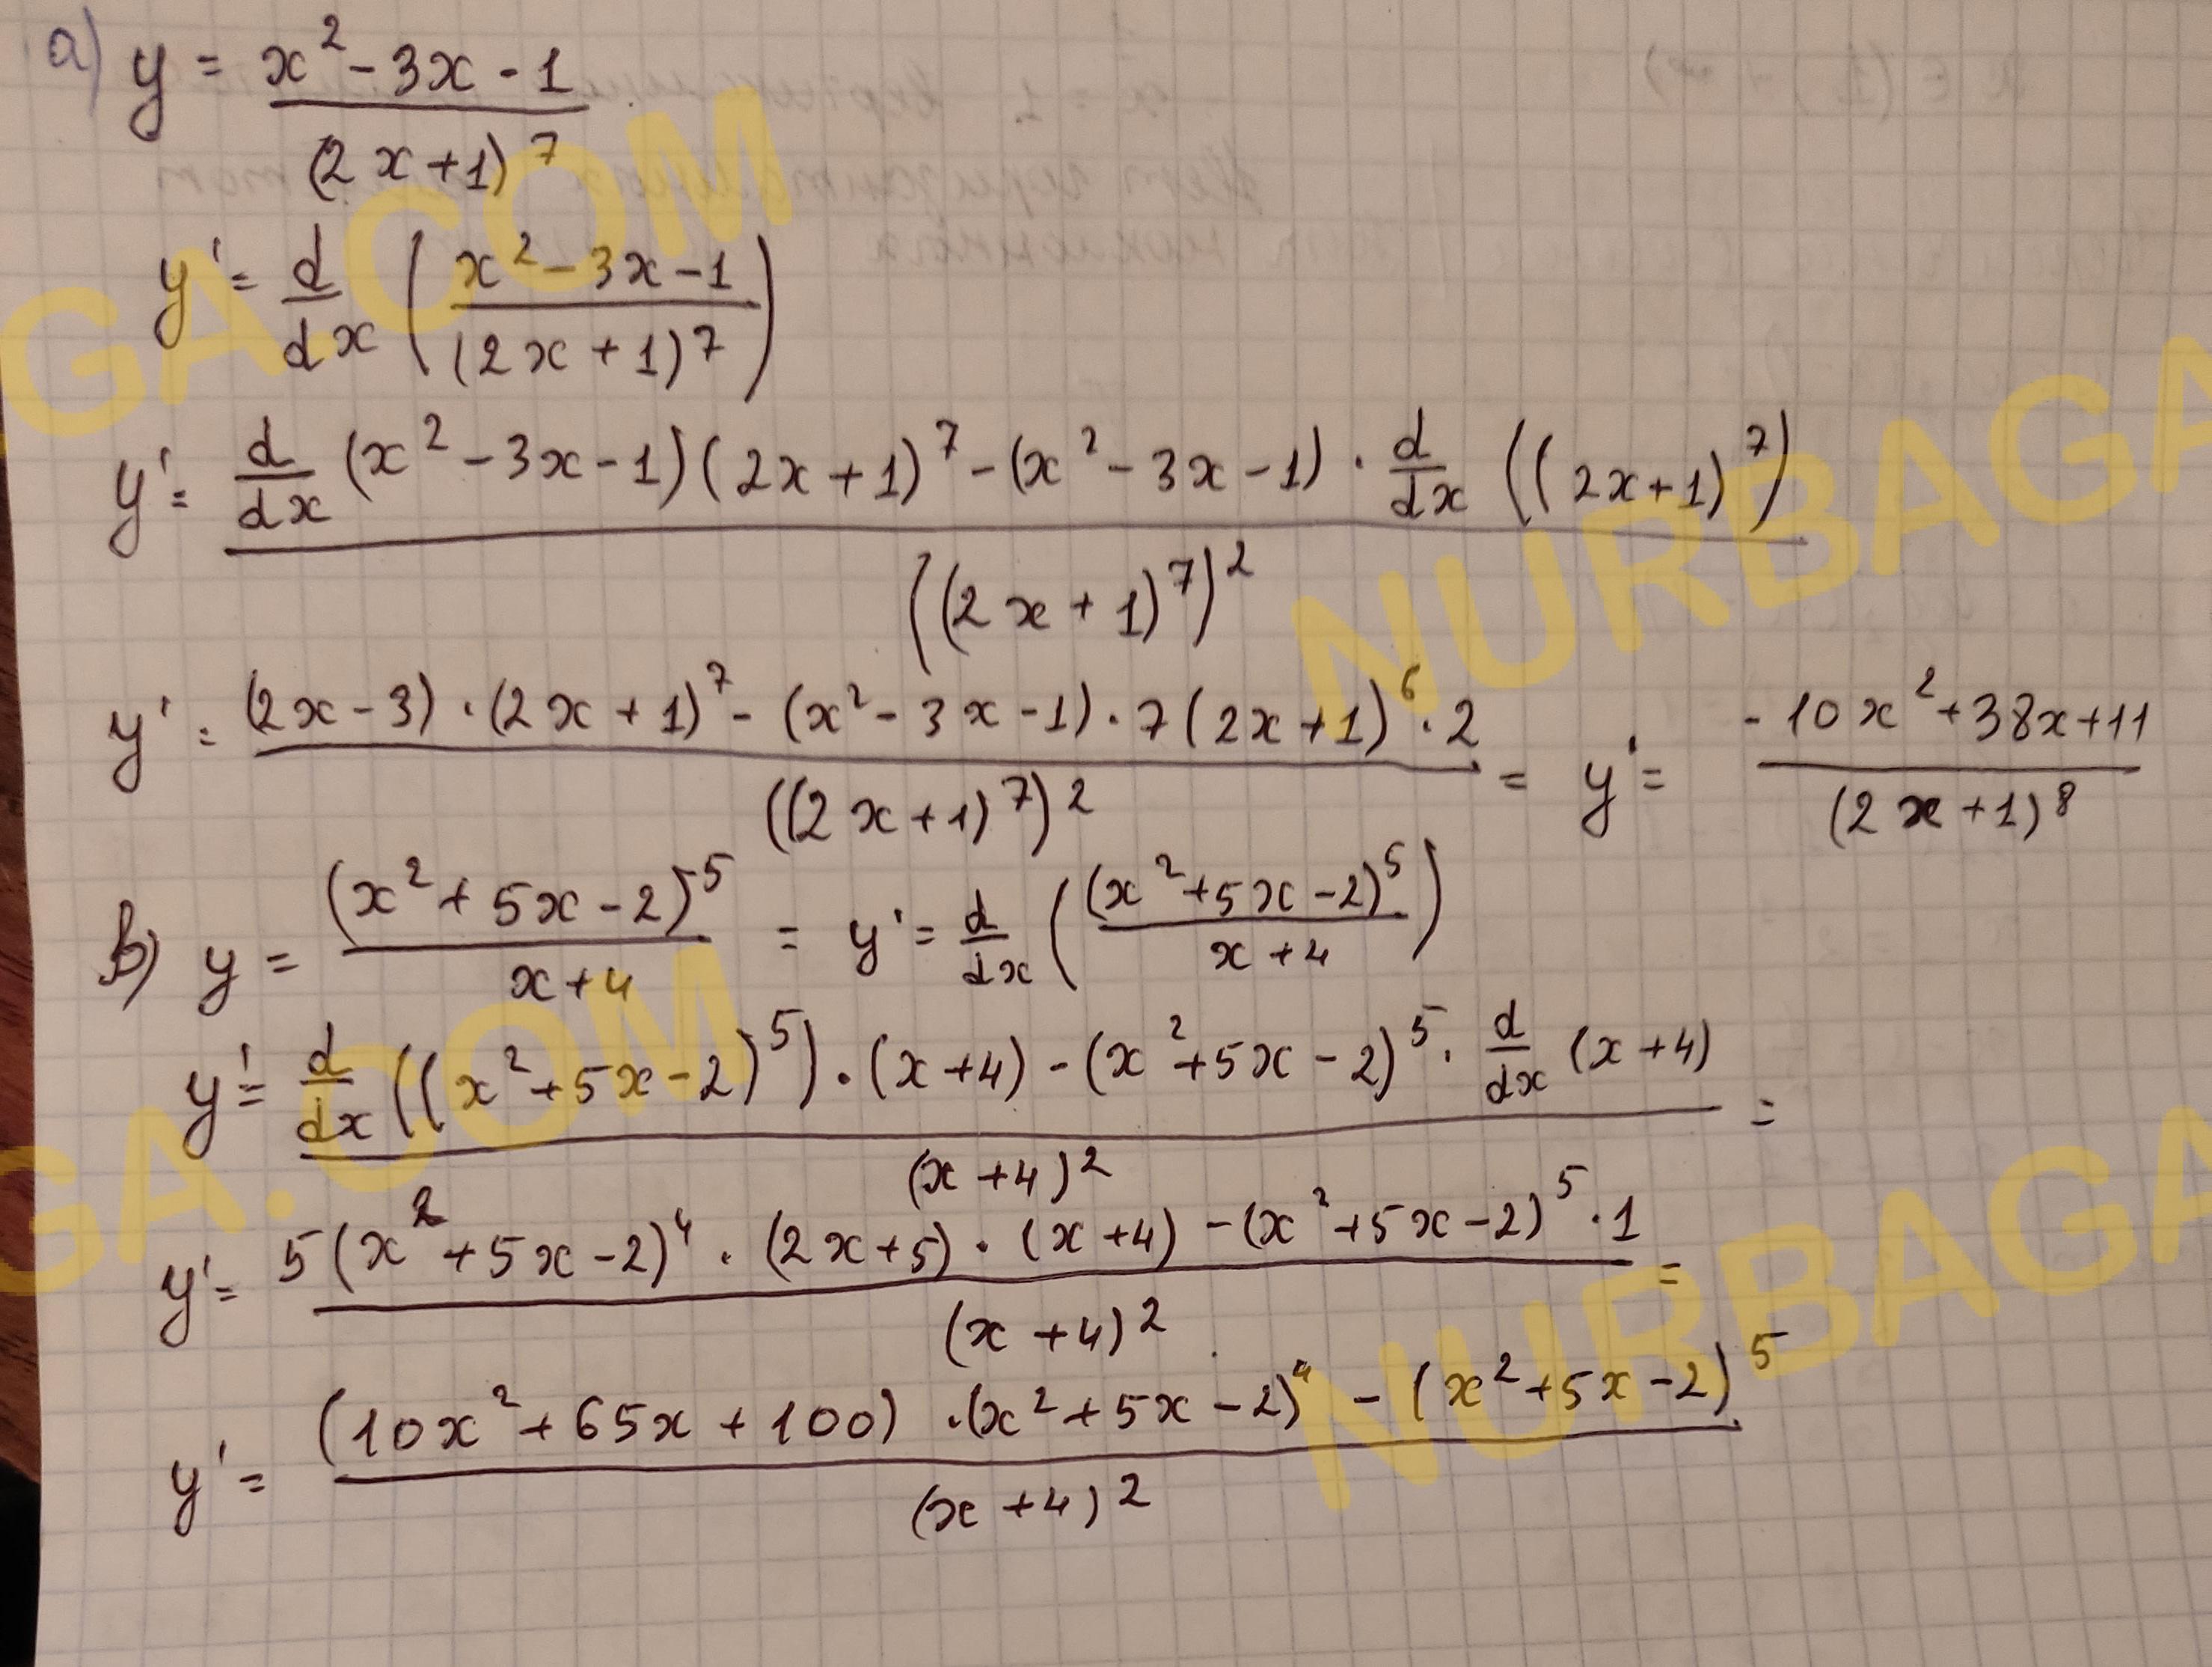 a) y = x² - 3x - 1 / (2x+1)⁷
y' = d/dx (x² - 3x - 1 / (2x+1)⁷)
y' = d/dx (x² - 3x - 1)(2x+1)⁷ - (x² - 3x - 1) · d/dx ((2x+1)⁷) / ((2x+1)⁷)²
y' = (2x-3) · (2x+1)⁷ - (x² - 3x - 1) · 7(2x+1)⁶ · 2 / ((2x+1)⁷)² = y' = -10x² + 38x + 11 / (2x+1)⁸
b) y = (x² + 5x - 2)⁵ / x+4 = y' = d/dx ((x² + 5x - 2)⁵ / x+4)
y' = d/dx ((x² + 5x - 2)⁵) · (x+4) - (x² + 5x - 2)⁵ · d/dx (x+4) / (x+4)² =
y' = 5(x² + 5x - 2)⁴ · (2x+5) · (x+4) - (x² + 5x - 2)⁵ · 1 / (x+4)² =
y' = (10x² + 65x + 100) · (x² + 5x - 2)⁴ - (x² + 5x - 2)⁵ / (x+4)²
GA.COM
NURBAGA
GA.COM
NURBAGA